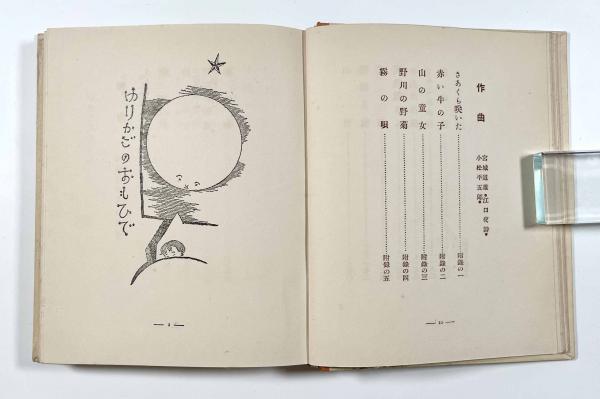 作曲
宮城道雄・江口夜詩・
小松平五郎・
さあくも咲いた…………附録の一
赤い牛の子…………附録の二
山の童女…………附録の三
野川の野菊…………附録の四
霧の唄…………附録の五
ゆりかごのおもひで